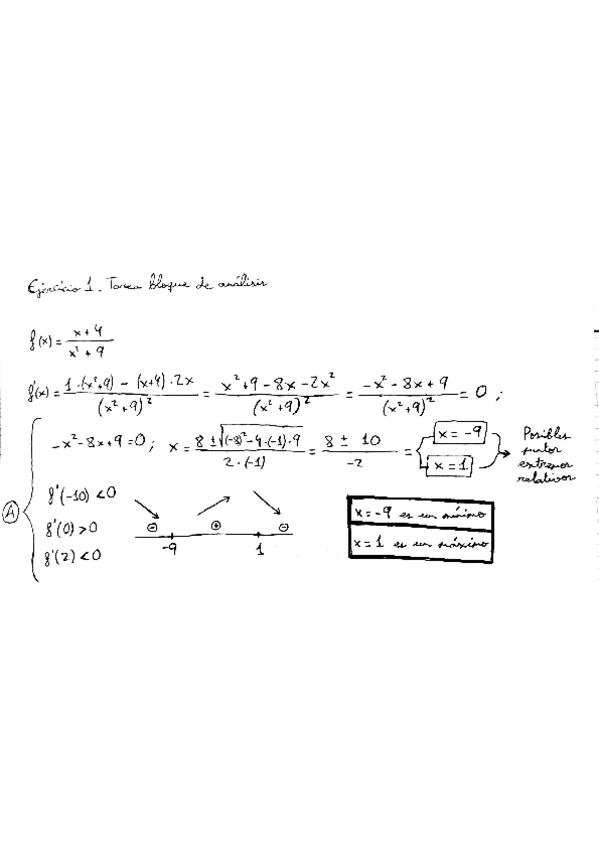 Ejercicio 1. Tarea bloque de análisis
f(x) = (x+4)/(x²+9)
f'(x) = (1·(x²+9) - (x+4)·2x)/(x²+9)² = (x²+9-8x-2x²)/(x²+9)² = (-x²-8x+9)/(x²+9)² = 0 ;
-x²-8x+9=0 ; x = (8 ± √((-8)²-4·(-1)·9))/(2·(-1)) = (8 ± 10)/(-2) = x = -9
x = 1
Posibles
puntos
extremos
relativos
A
f'(-10) < 0
f'(0) > 0
f'(2) < 0
⊖ ⊕ ⊖
-9 1
x = -9 es un mínimo
x = 1 es un máximo